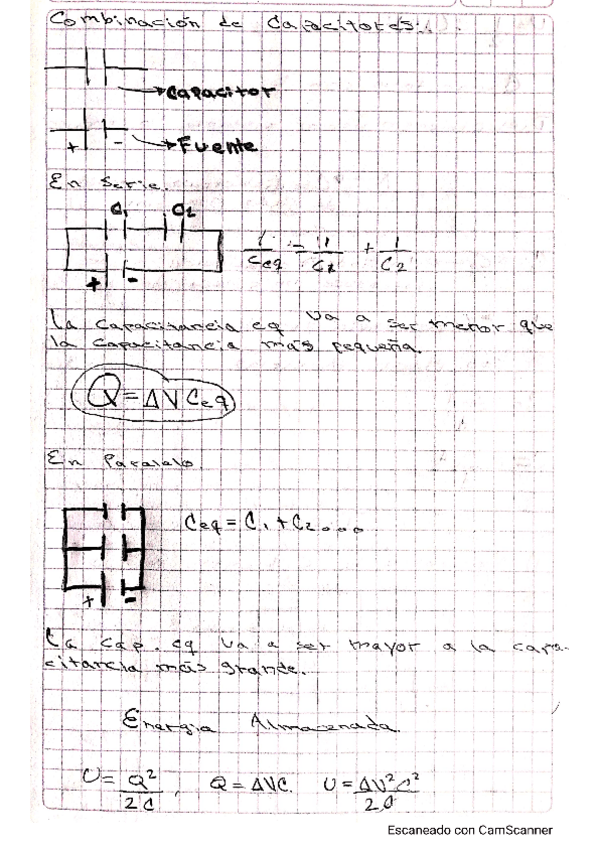 Combinación de Capacitores:.
Capacitor
+ - Fuente
En Serie.
C1 C2
1/Ceq = 1/C1 + 1/C2
+ -
La capacitancia eq va a ser menor que
la capacitancia más pequeña.
Q = ΔV Ceq
En Paralelo.
Ceq = C1 + C2....
+ -
La cap. eq va a ser mayor a la capa-
citancia más grande.
Energía Almacenada.
U = Q²/2C , Q = ΔVC. U = ΔV²C²/2C
Escaneado con CamScanner